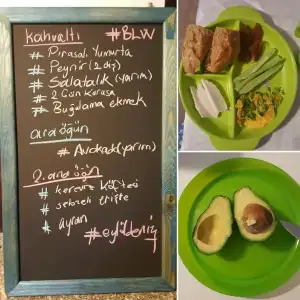 Kahvaltı #BLW
# Pırasalı Yumurta
# Peynir (2 diş)
# Salatalık (yarım)
# 2 Gün Kurusu
# Buğulama ekmek
ara öğün
# Avokado (yarım)
2. ara öğün
# kereviz köftesi
# sebzeli erişte
# ayran
#eylüldeniz